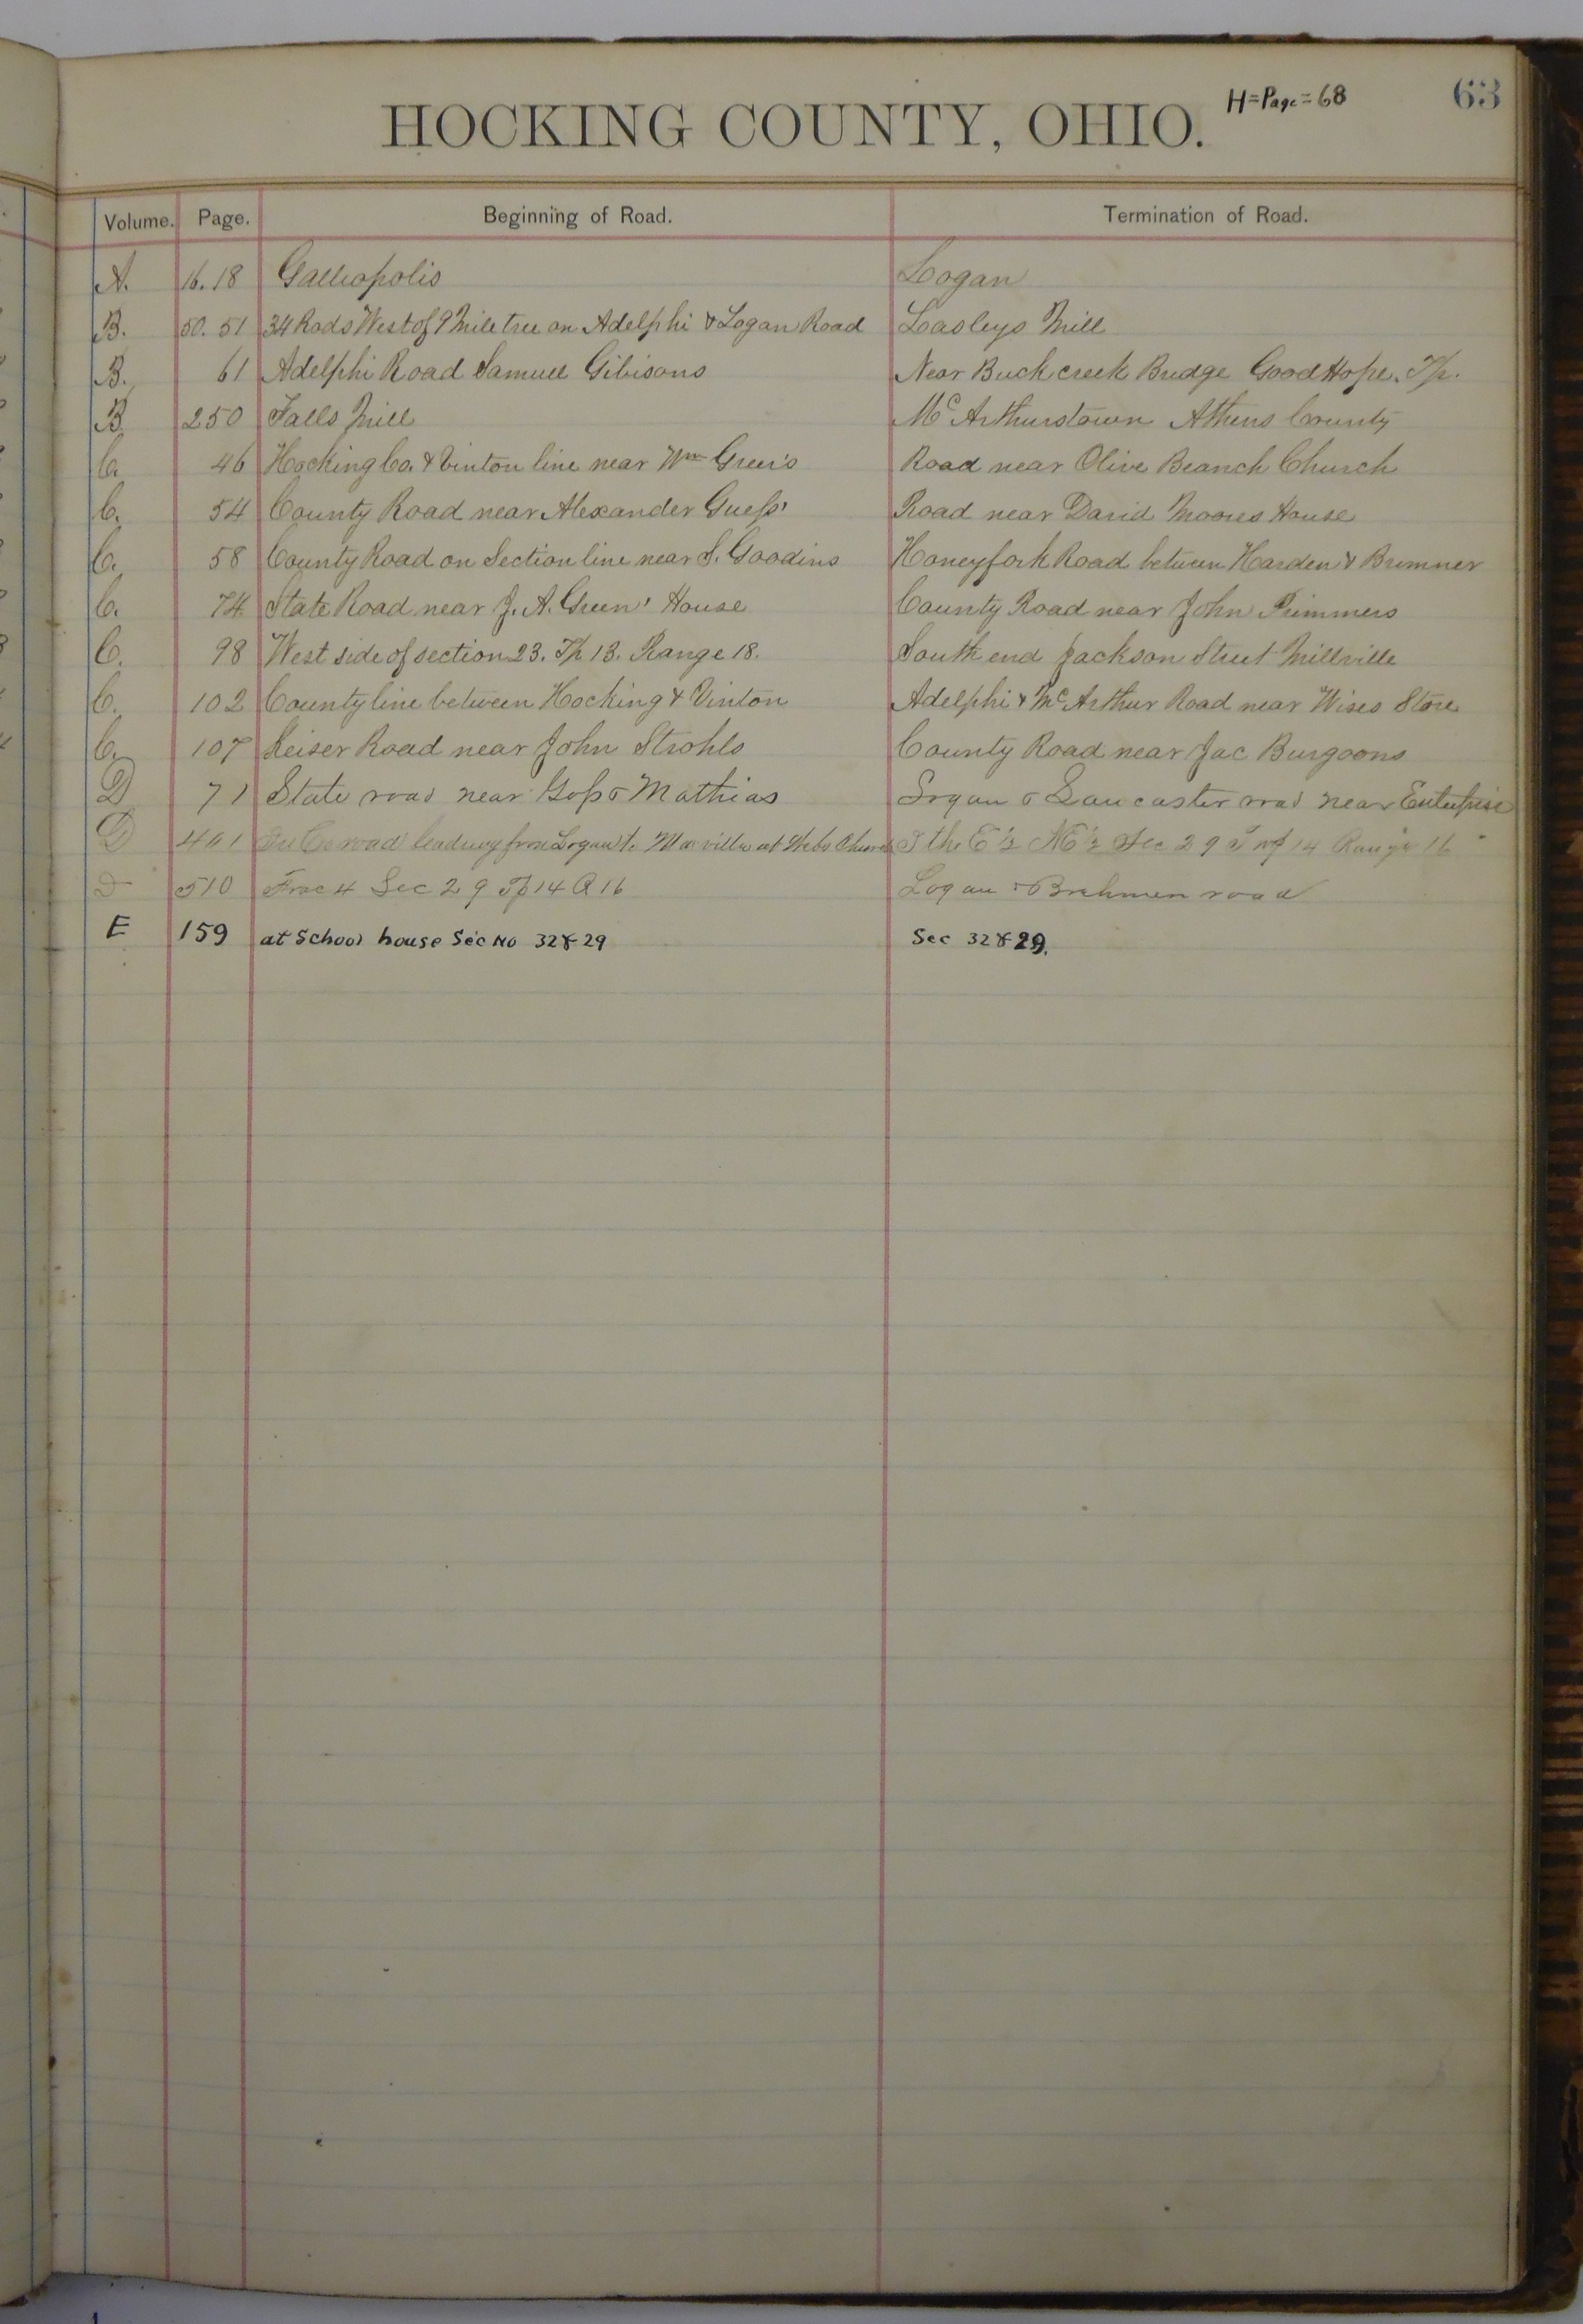 H=Page=68
63
HOCKING COUNTY, OHIO.
Volume. Page. Beginning of Road. Termination of Road.
A. 16.18 Galliopolis Logan
B. 50.51 34 Rods West of 9 Mile tree on Adelphi & Logan Road Lasleys Mill
B. 61 Adelphi Road Samuel Gibisons Near Buck creek Bridge Good Hope. Tp.
B. 250 Falls Mill McArthurstown Athens County
C. 46 Hocking Co. & Vinton line near Wm Green's Road near Olive Branch Church
C. 54 County Road near Alexander Guess' Road near David Moores House
C. 58 County Road on Section line near S. Goodins Honeyfork Road between Harden & Bremner
C. 74 State Road near J. A. Green' House County Road near John Primmers
C. 98 West side of section 23. Tp 13. Range 18. South end Jackson Street Millville
C. 102 County line between Hocking & Vinton Adelphi & McArthur Road near Wises Store
C. 107 Keiser Road near John Strohls County Road near Jac Burgoons
D 71 State road near Goss & Mathias Logan & Lancaster road near Enterprise
D 401 Co road leading from Logan to at Webs the E½ NE¼ Sec 29 Tp 14 Range 16
D 510 Frac 4 Sec 29 Tp 14 R 16 Logan & Brehmen road
E 159 at School house Sec No 32 & 29 Sec 32 & 29.